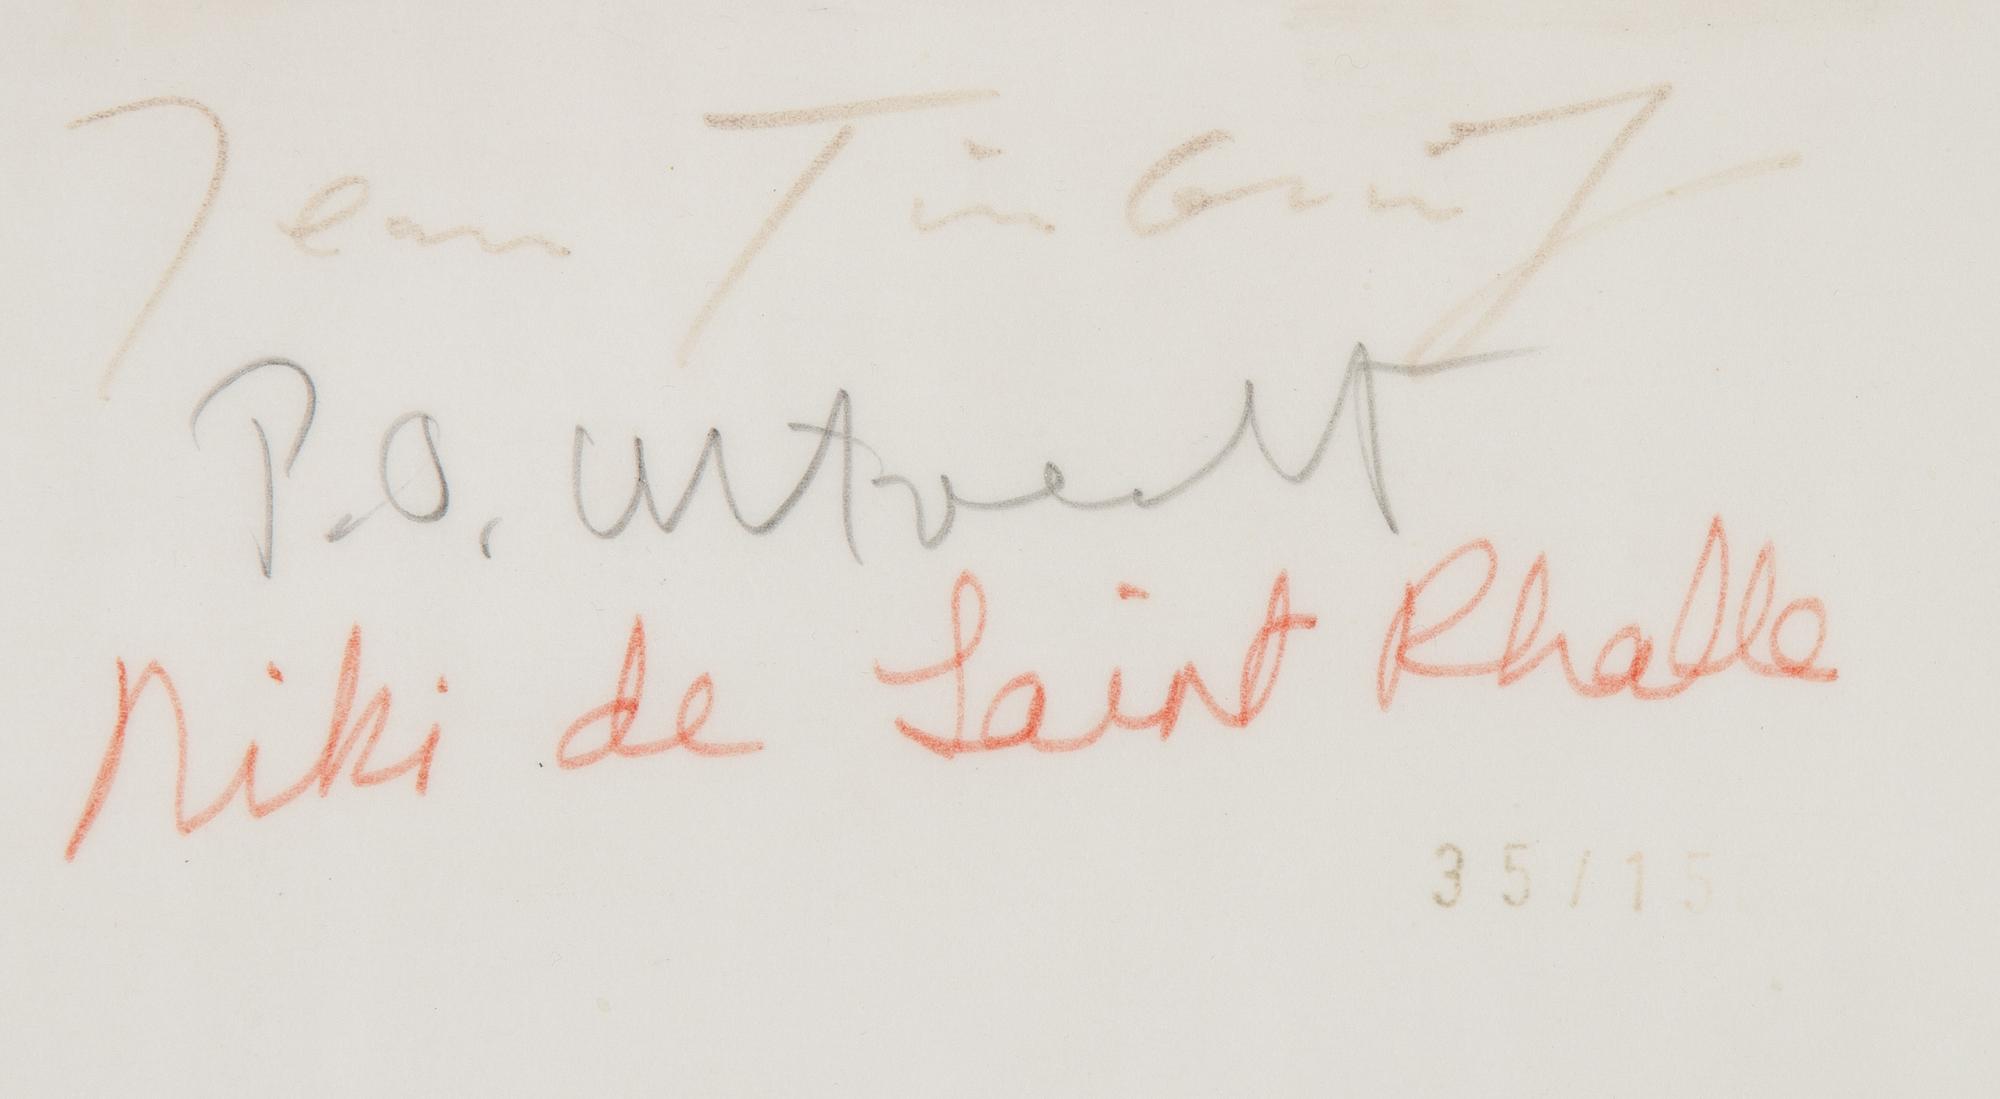 Jean Tinguely
P.O. Ultvedt
Niki de Saint Phalle
35/15